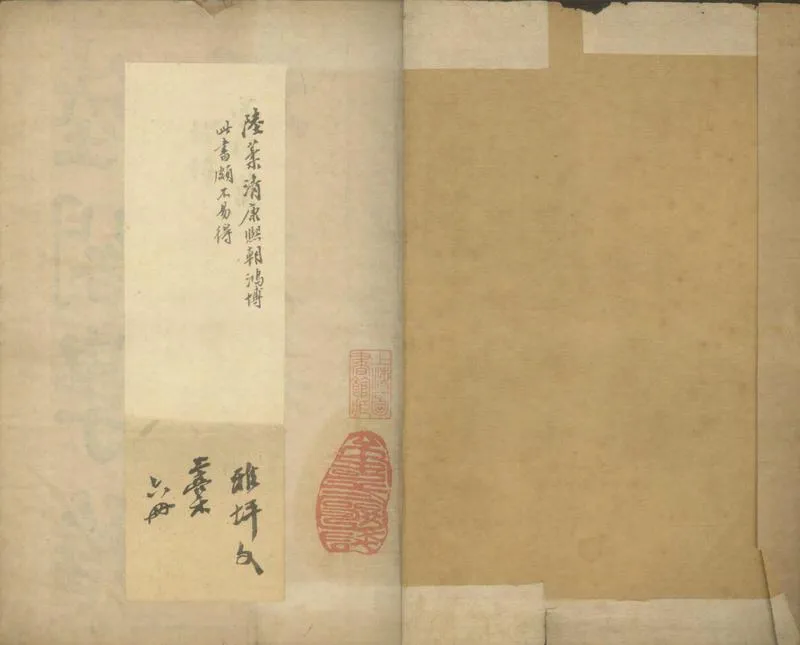 陸葇清康熙朝鴻博
此書頗不易得
雅坪文
稾
六冊
上海圖
書館藏